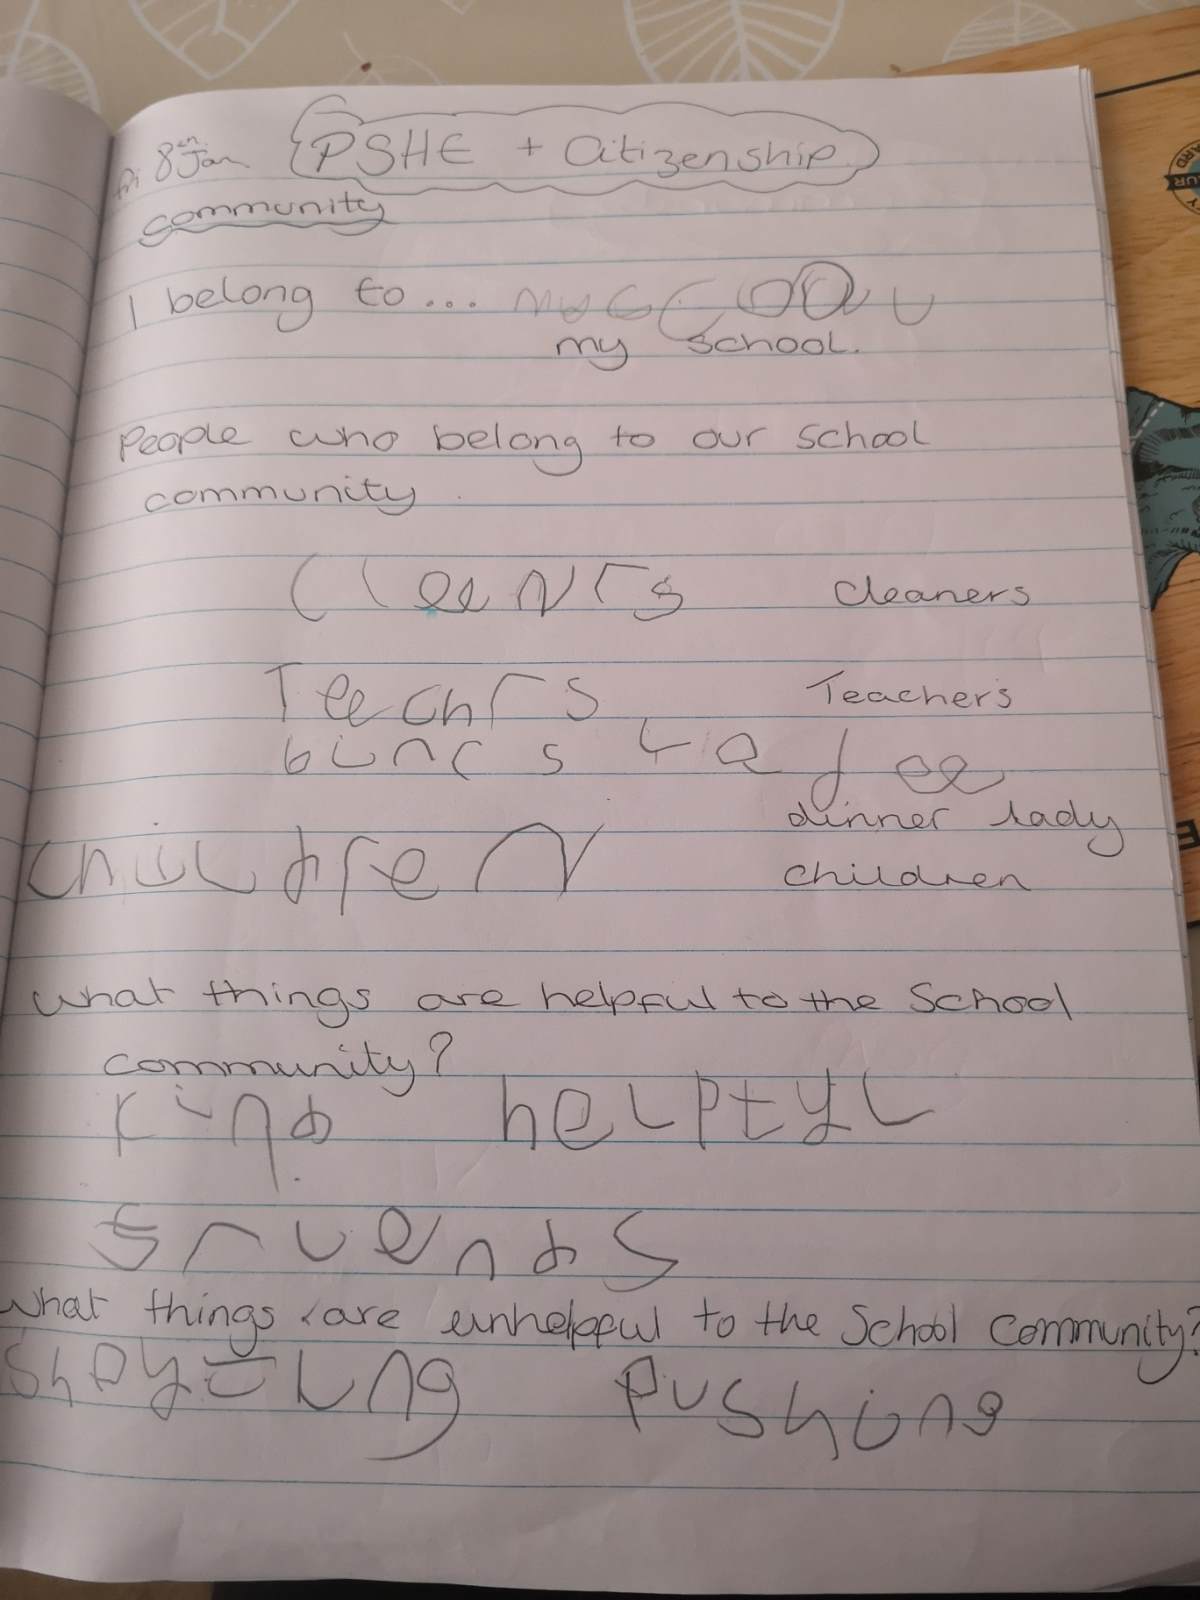 Fri 8th Jan PSHE + Citizenship
community
I belong to...
my school.
People who belong to our school
community
Cleenrs cleaners
Teechrs Teachers
dinner lady
children children
What things are helpful to the School
community?
kind helptyl
fruends
What things are unhelpful to the School Community?
pushing